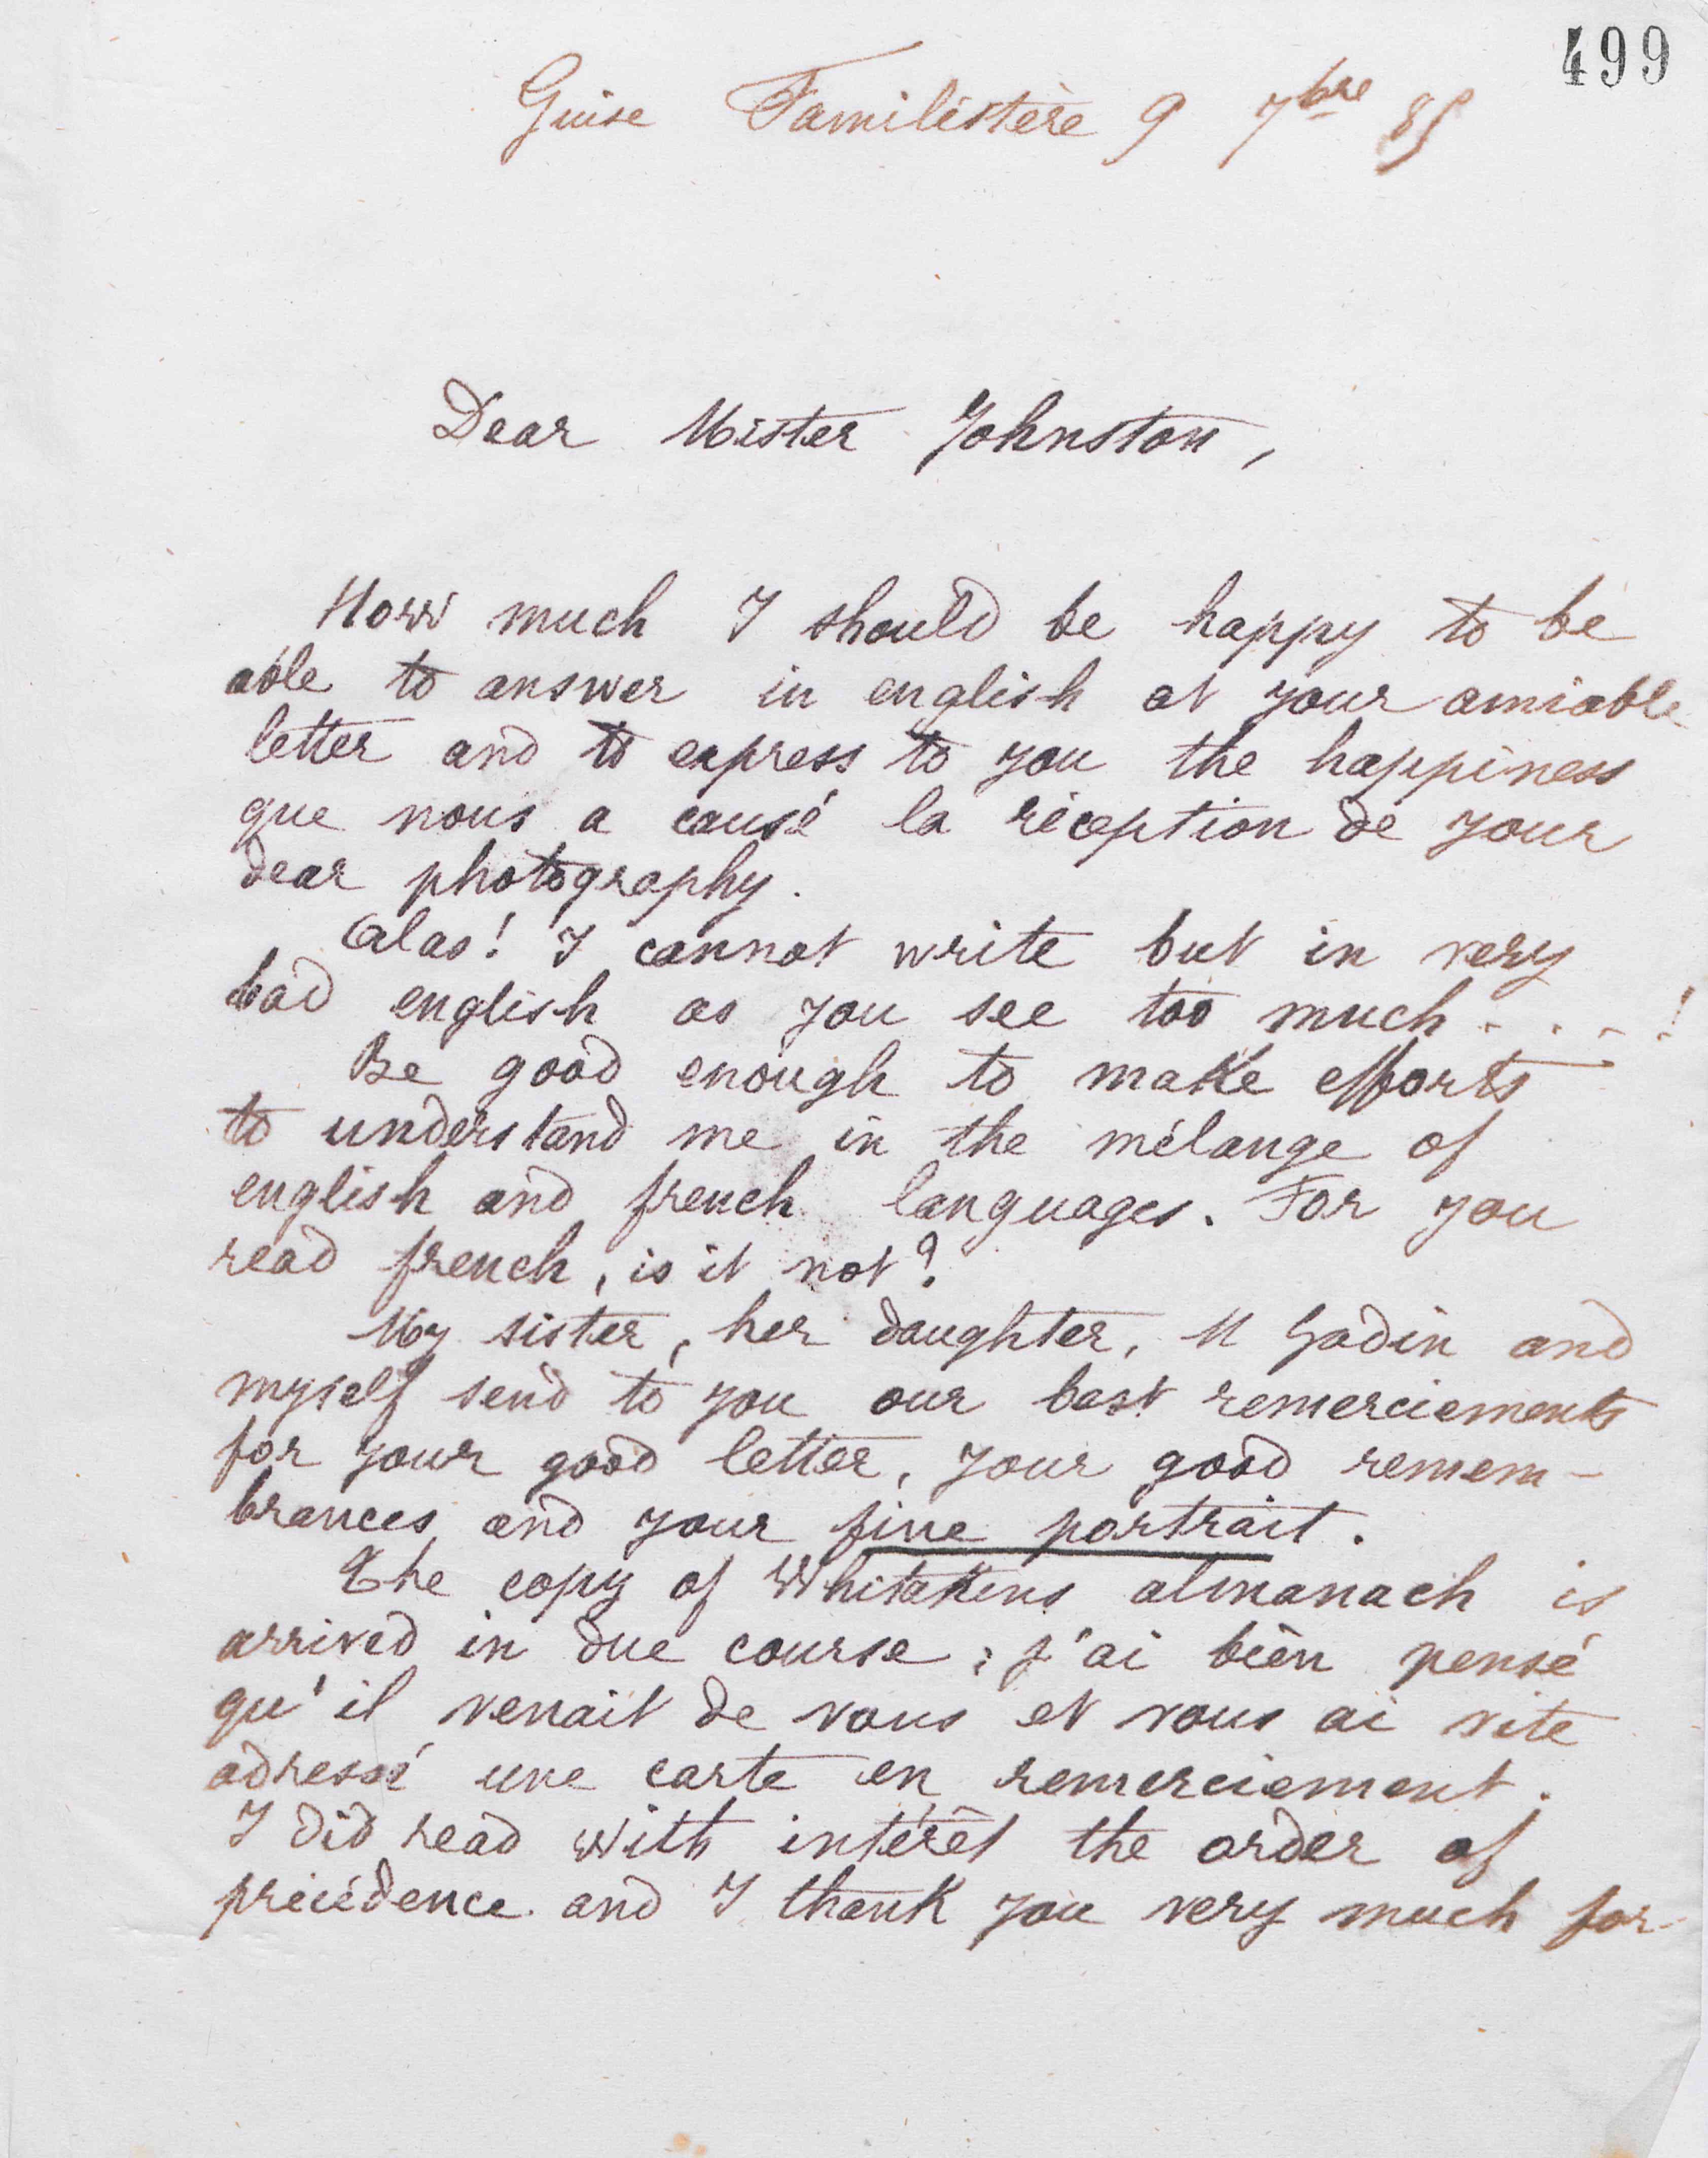 499
Guise Familistère 9 7bre 85
Dear Mister Johnston,
How much I should be happy to be
able to answer in english at your amiable
letter and to express to you the happiness
que nous a causé la réception de your
dear photography.
Alas! I cannot write but in very
bad english as you see too much....!
Be good enough to make efforts
to understand me in the mélange of
english and french languages. For you
read french, is it not?
My sister, her daughter, M Godin and
myself send to you our best remerciements
for your good letter, your good remem-
brances and your fine portrait.
The copy of Whitakens almanach is
arrived in due course; j'ai bien pensé
qu'il venait de vous et vous ai vite
adressé une carte en remerciement.
I did read with intérêt the order of
précédence and I thank you very much for